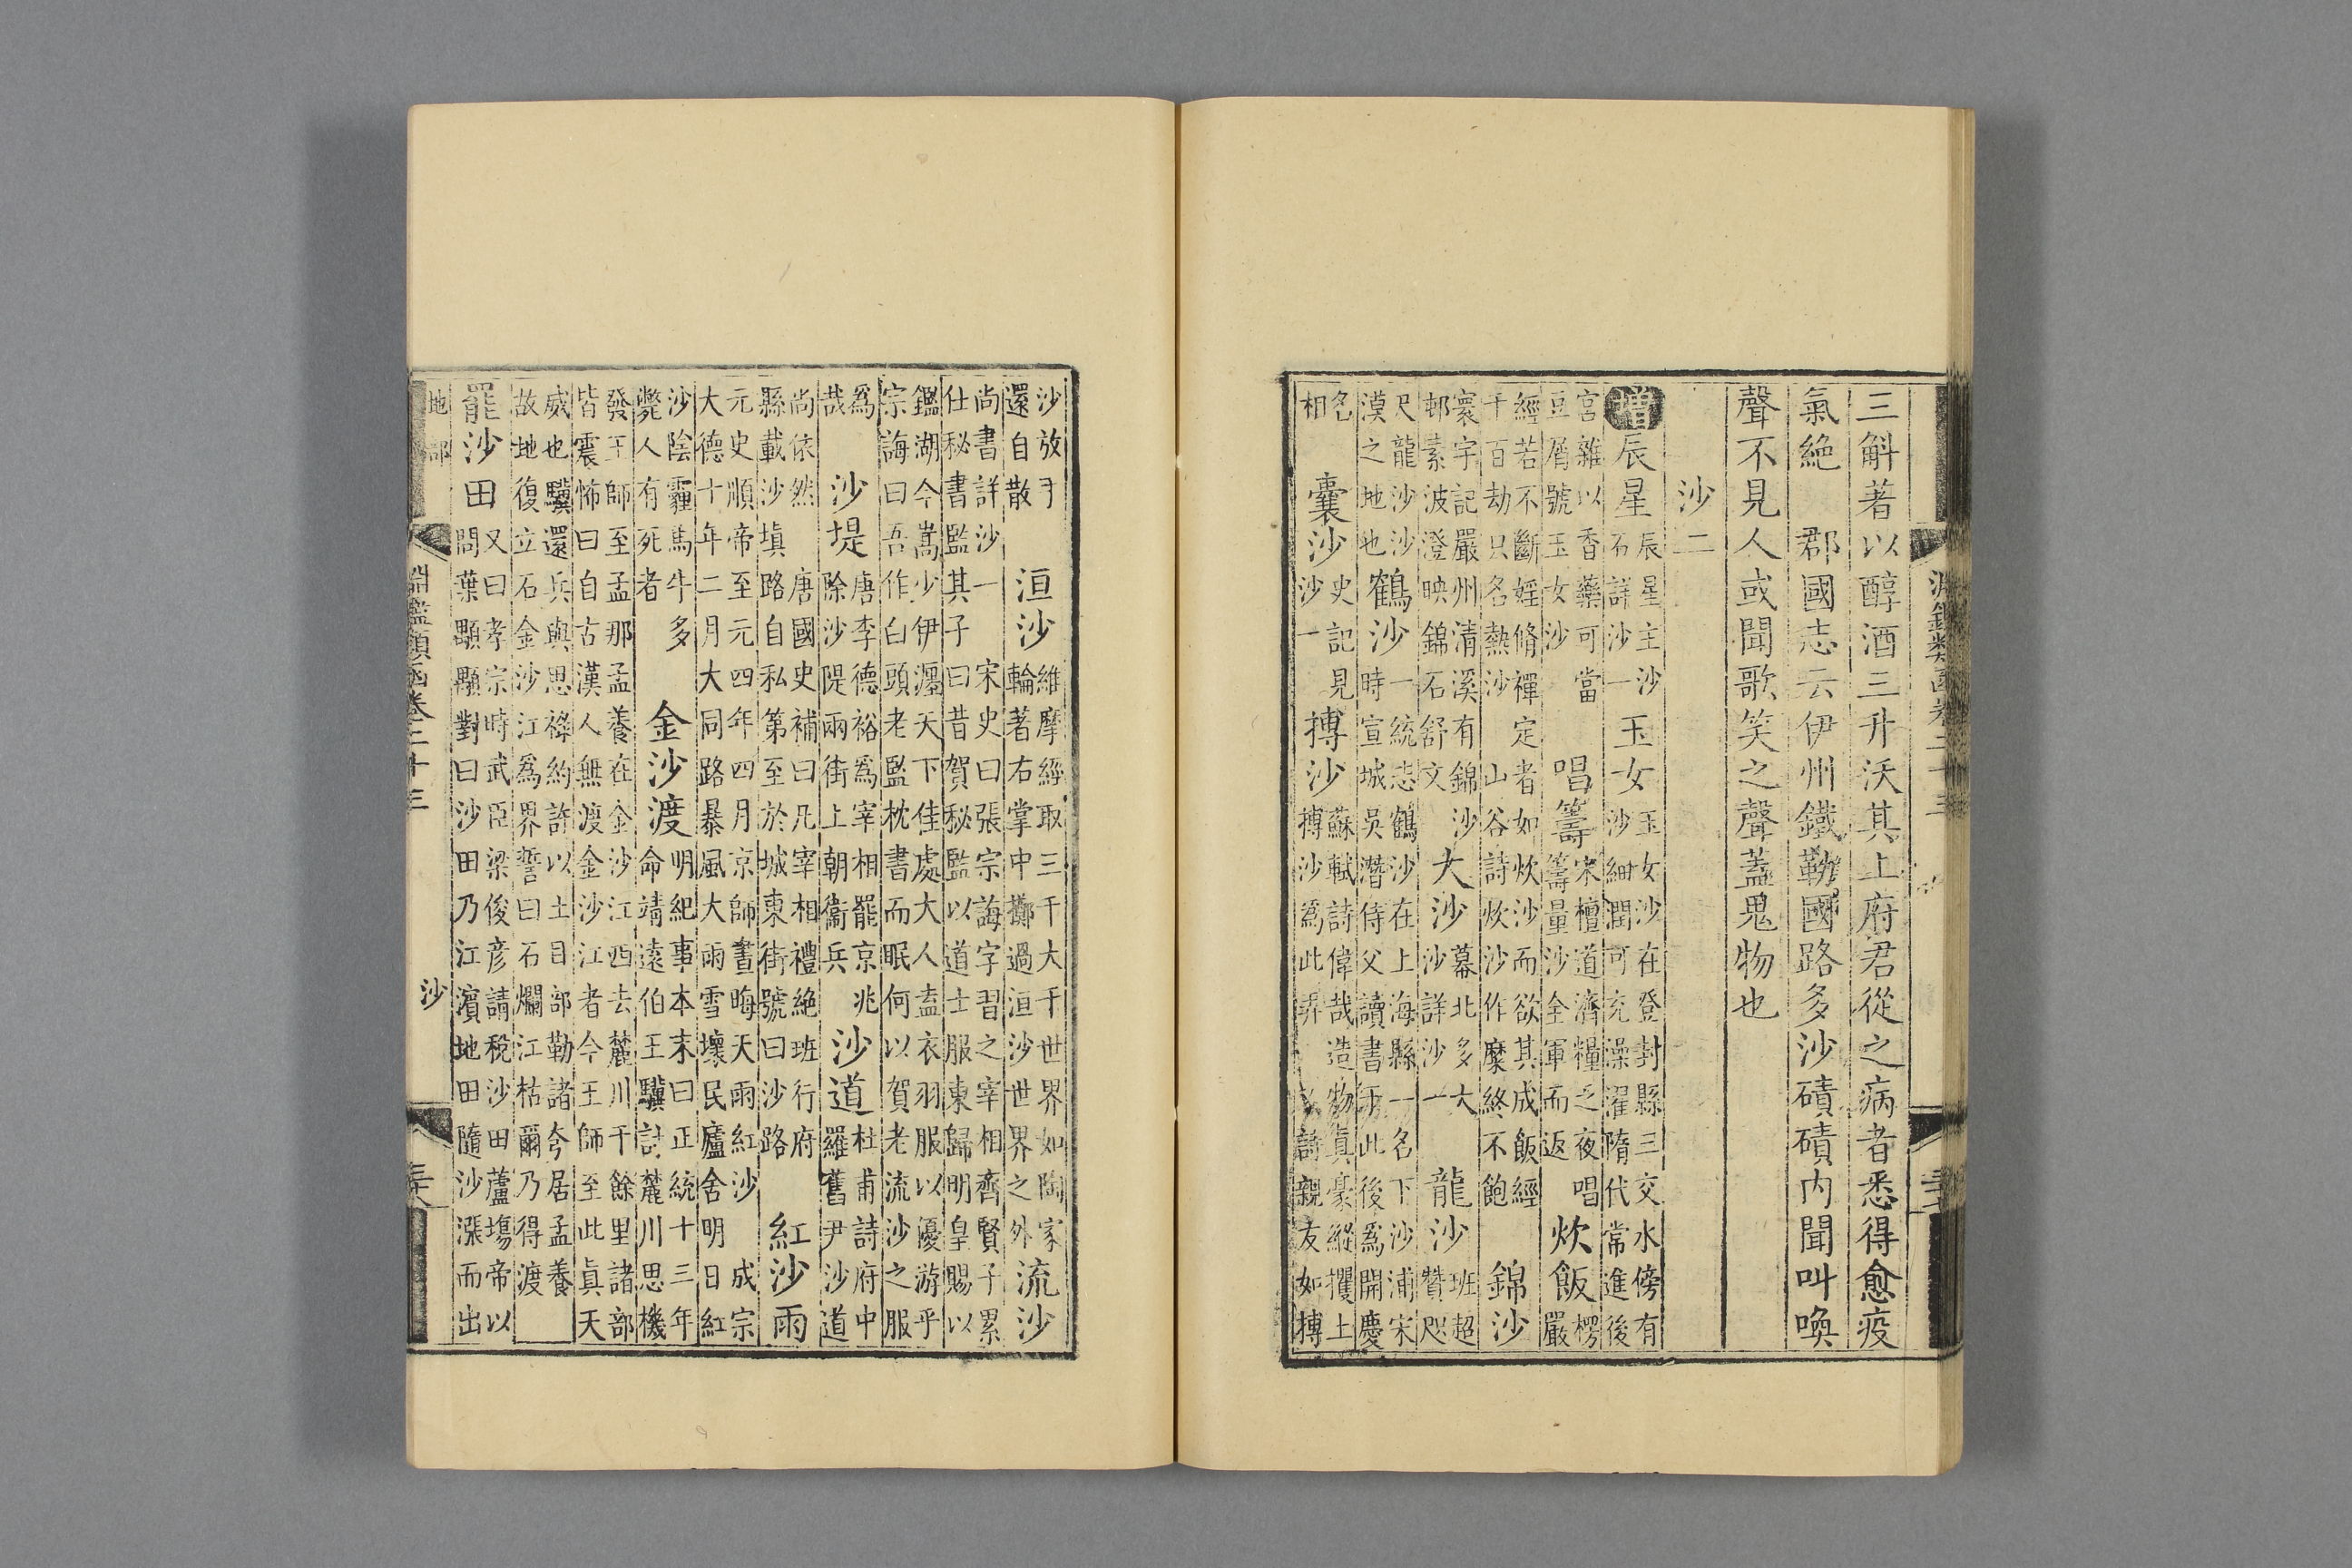 淵鑑類函卷二十三
三斛著以醇酒三升沃其上府君從之病者悉得愈疫
氣絶　郡國志云伊州鐵勒國路多沙磧磧内聞叫喚
聲不見人或聞歌笑之聲蓋鬼物也
沙二
增辰星辰星主沙石詳沙一　玉女玉女沙在登封縣三交水傍有沙細潤可充澡濯隋代常進後
宮雜以香藥可當豆屑號玉女沙　唱籌宋檀道濟糧乏夜唱籌量沙全軍而返　炊飯楞嚴
經若不斷婬脩禪定者如炊沙而欲其成飯經千百劫只名熱沙　山谷詩炊沙作糜終不飽　錦沙
寰宇記嚴州清溪有錦沙邨素波澄映錦石舒文　大沙幕北多大沙詳沙一　龍沙班超贊咫
尺龍沙沙漠之地也　鶴沙一統志鶴沙在上海縣一名下沙浦宋時宣城吳潛侍父讀書于此後爲開慶
名相　囊沙史記見沙一　搏沙蘇軾詩偉哉造物真豪縱攫上搏沙爲此弄　又詩親友如搏
沙放手還自散　洹沙維摩經取三千大千世界如陶家輪著右掌中擲過洹沙世界之外　流沙
尚書詳沙一　宋史曰張宗誨字習之宰相齊賢子累仕秘書監其子曰昔賀秘監以道士服東歸明皇賜以
鑑湖今嵩少伊瀍天下佳處大人盍衣羽服以優游乎宗誨曰吾作白頭老監枕書而眠何以賀老流沙之服
爲哉　沙堤唐李德裕爲宰相罷京兆除沙隄兩街上朝衞兵　沙道杜甫詩府中羅舊尹沙道
尚依然　唐國史補曰凡宰相禮絶班行府縣載沙填路自私第至於城東街號曰沙路　紅沙雨
元史順帝至元四年四月京師晝晦天雨紅沙　成宗大德十年二月大同路暴風大雨雪壞民廬舍明日紅
沙陰霾馬牛多斃人有死者　金沙渡明紀事本末曰正統十三年命靖遠伯王驥討麓川思機
發王師至孟那孟養在金沙江西去麓川千餘里諸部皆震怖曰自古漢人無渡金沙江者今王師至此真天
威也驥還兵與思祿約許以土目部勒諸夸居孟養故地復立石金沙江爲界誓曰石爛江枯爾乃得渡
罷沙田又曰孝宗時武臣梁俊彦請稅沙田蘆塲帝以問葉顒顒對曰沙田乃江濱地田隨沙漲而出
地部　淵鑑類函卷二十三　沙